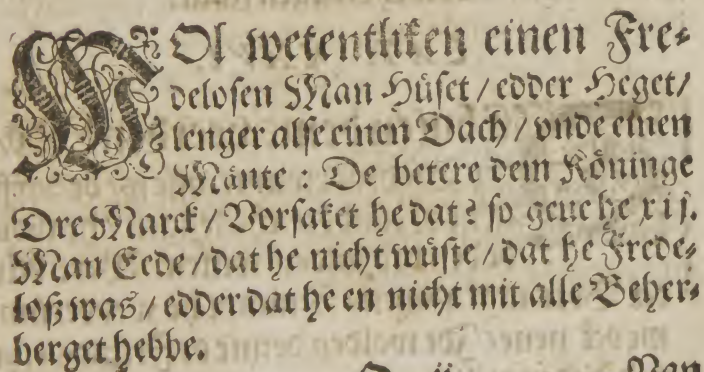 WOl wetentliken einen Fre⸗
delosen Man Hüset / edder Heget /
lenger alse einen Dach / vnde einen
Mänte : De betere dem Köninge
Dre Marck / Vorsaket he dat? so geue he xij.
Man Eede / dat he nicht wüste / dat he Frede⸗
loß was / edder dat he en nicht mit alle Beher⸗
berget hebbe.
Van